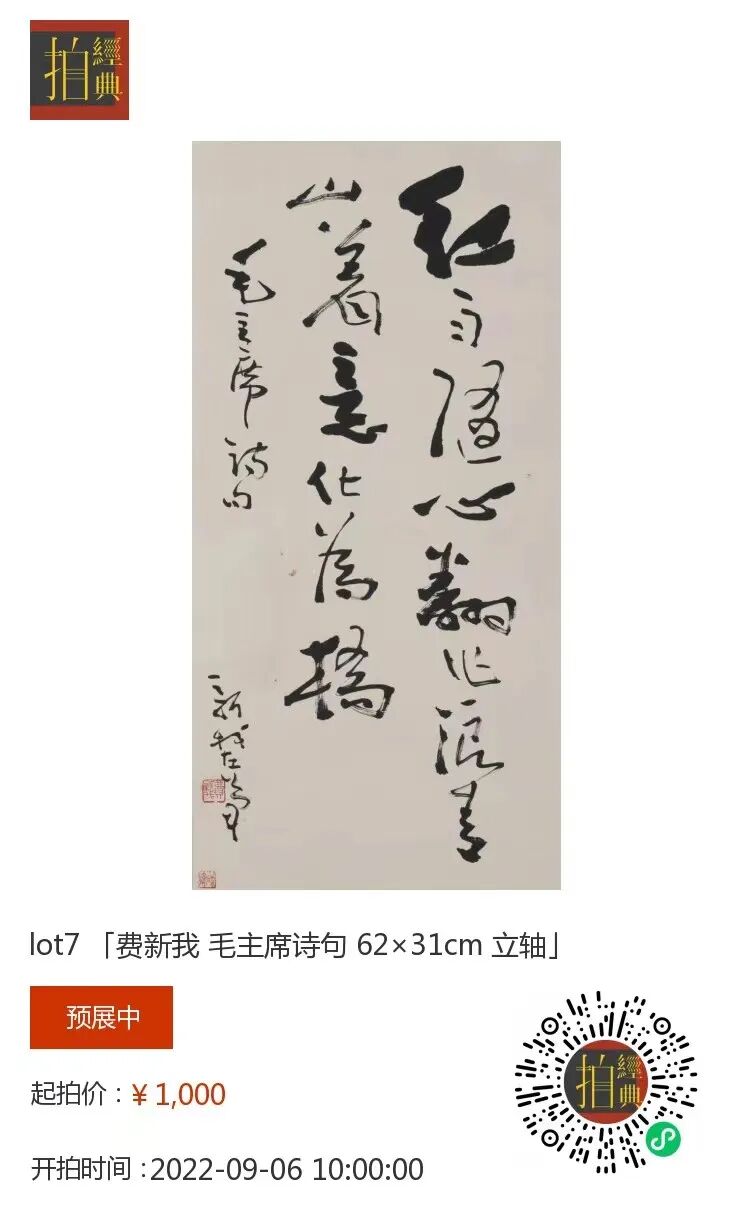 拍經典
紅雨隨心翻作浪青
山着意化為橋
毛主席詩句
lot7 「费新我 毛主席诗句 62×31cm 立轴」
预展中
起拍价：¥ 1,000
开拍时间：2022-09-06 10:00:00
拍經典